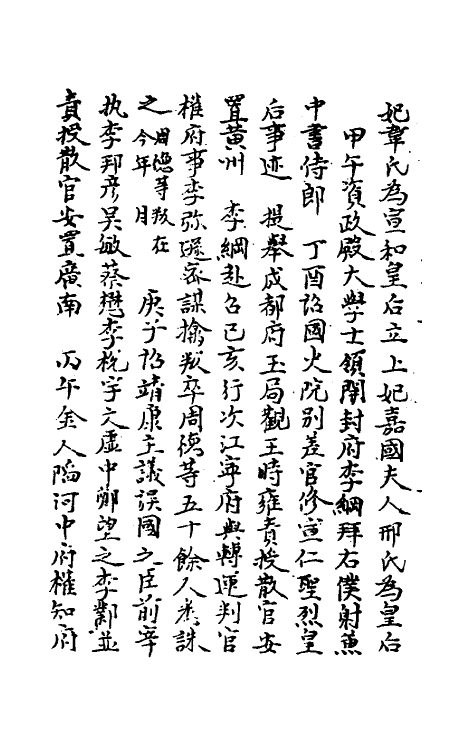 妃韋氏為宣和皇后立上妃嘉國夫人邢氏為皇后
甲午資政殿大學士領開封府李綱拜右僕射兼
中書侍郎　丁酉詔國史院别差官修宣仁聖烈皇
后事迹　提舉成都府玉局觀王時雍責授散官安
置黄州　李綱赴召己亥行次江寧府與轉運判官
權府事李弥遜密謀擒叛卒周德等五十餘人悉誅
之周德等叛在今年　月　庚子詔靖康主議誤國之臣前宰
执李邦彦吴敏蔡懋李梲宇文虚中鄭望之李鄴並
責授散官安置廣南　丙午金人陷河中府權知府